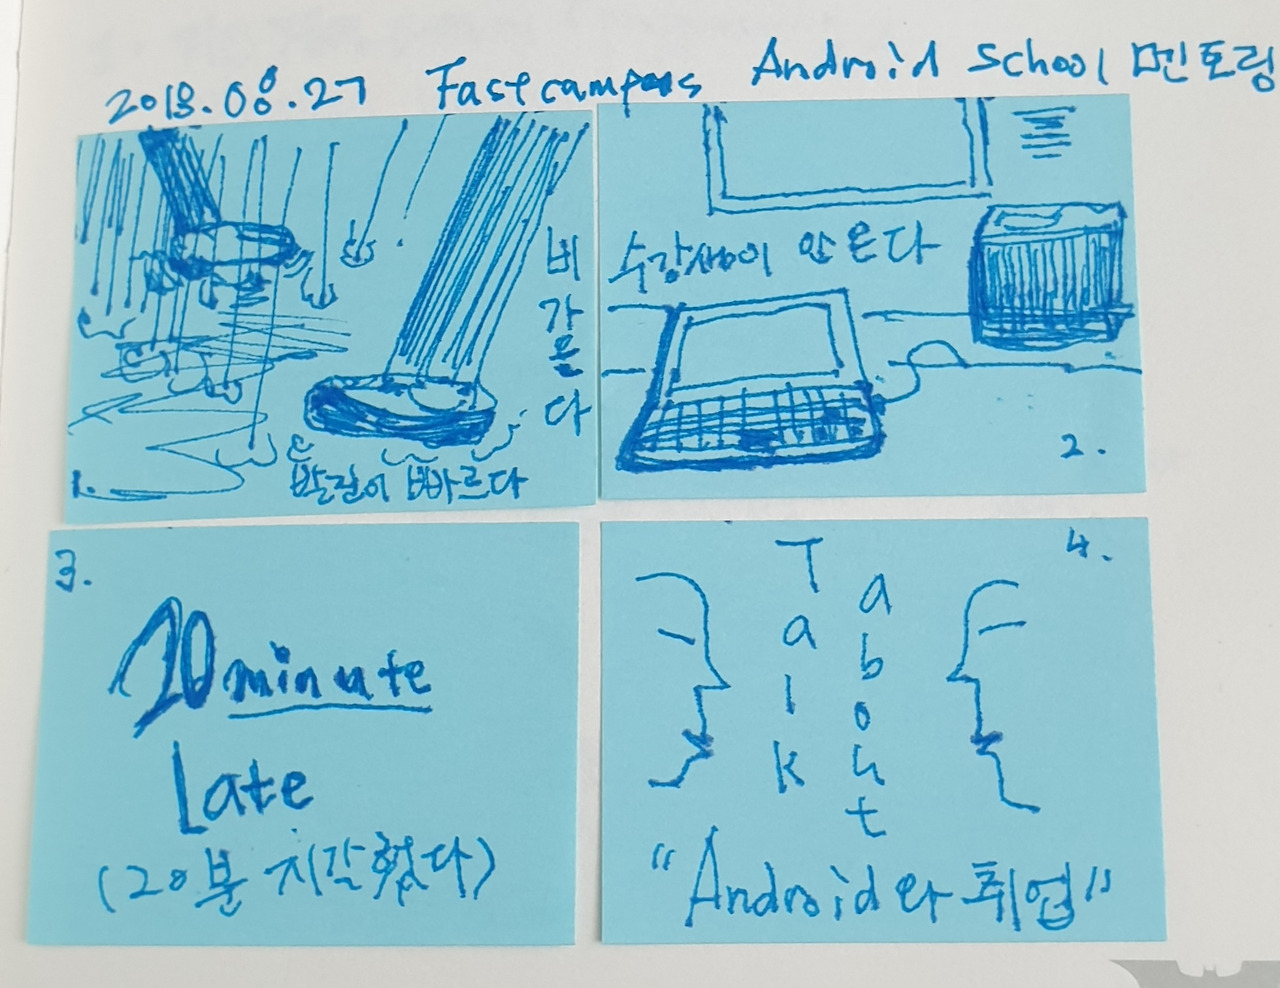 2018.08.27 Fastcampus Android School 멘토링
비가온다
발길이 빠르다
1.
수강생이 안 온다
2.
3.
20minute
Late
(20분 지각했다)
4.
Talk
about
"Android와 취업"